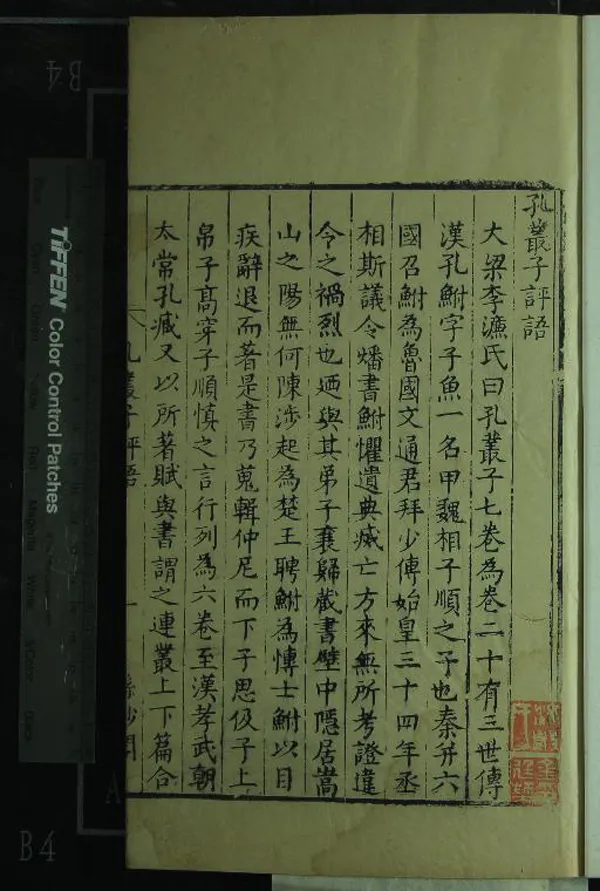 孔叢子評語
大梁李濂氏曰孔叢子七卷為卷二十有三世傳
漢孔鮒字子魚一名甲魏相子順之子也秦并六
國召鮒為魯國文通君拜少傅始皇三十四年丞
相斯議令燔書鮒懼遺典滅亡方來無所考證違
令之禍烈也迺與其弟子襄歸藏書壁中隱居嵩
山之陽無何陳涉起為楚王聘鮒為愽士鮒以目
疾辭退而著是書乃蒐輯仲尼而下子思伋子上
帛子高穿子順慎之言行列為六卷至漢孝武朝
太常孔臧又以所著賦與書謂之連叢上下篇合
孔叢子評語
一
TIFFEN Color Control Patches
B4
B4